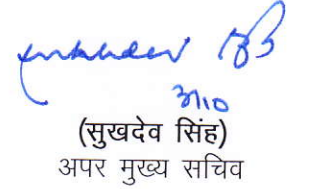 3/10
(सुखदेव सिंह)
अपर मुख्य सचिव